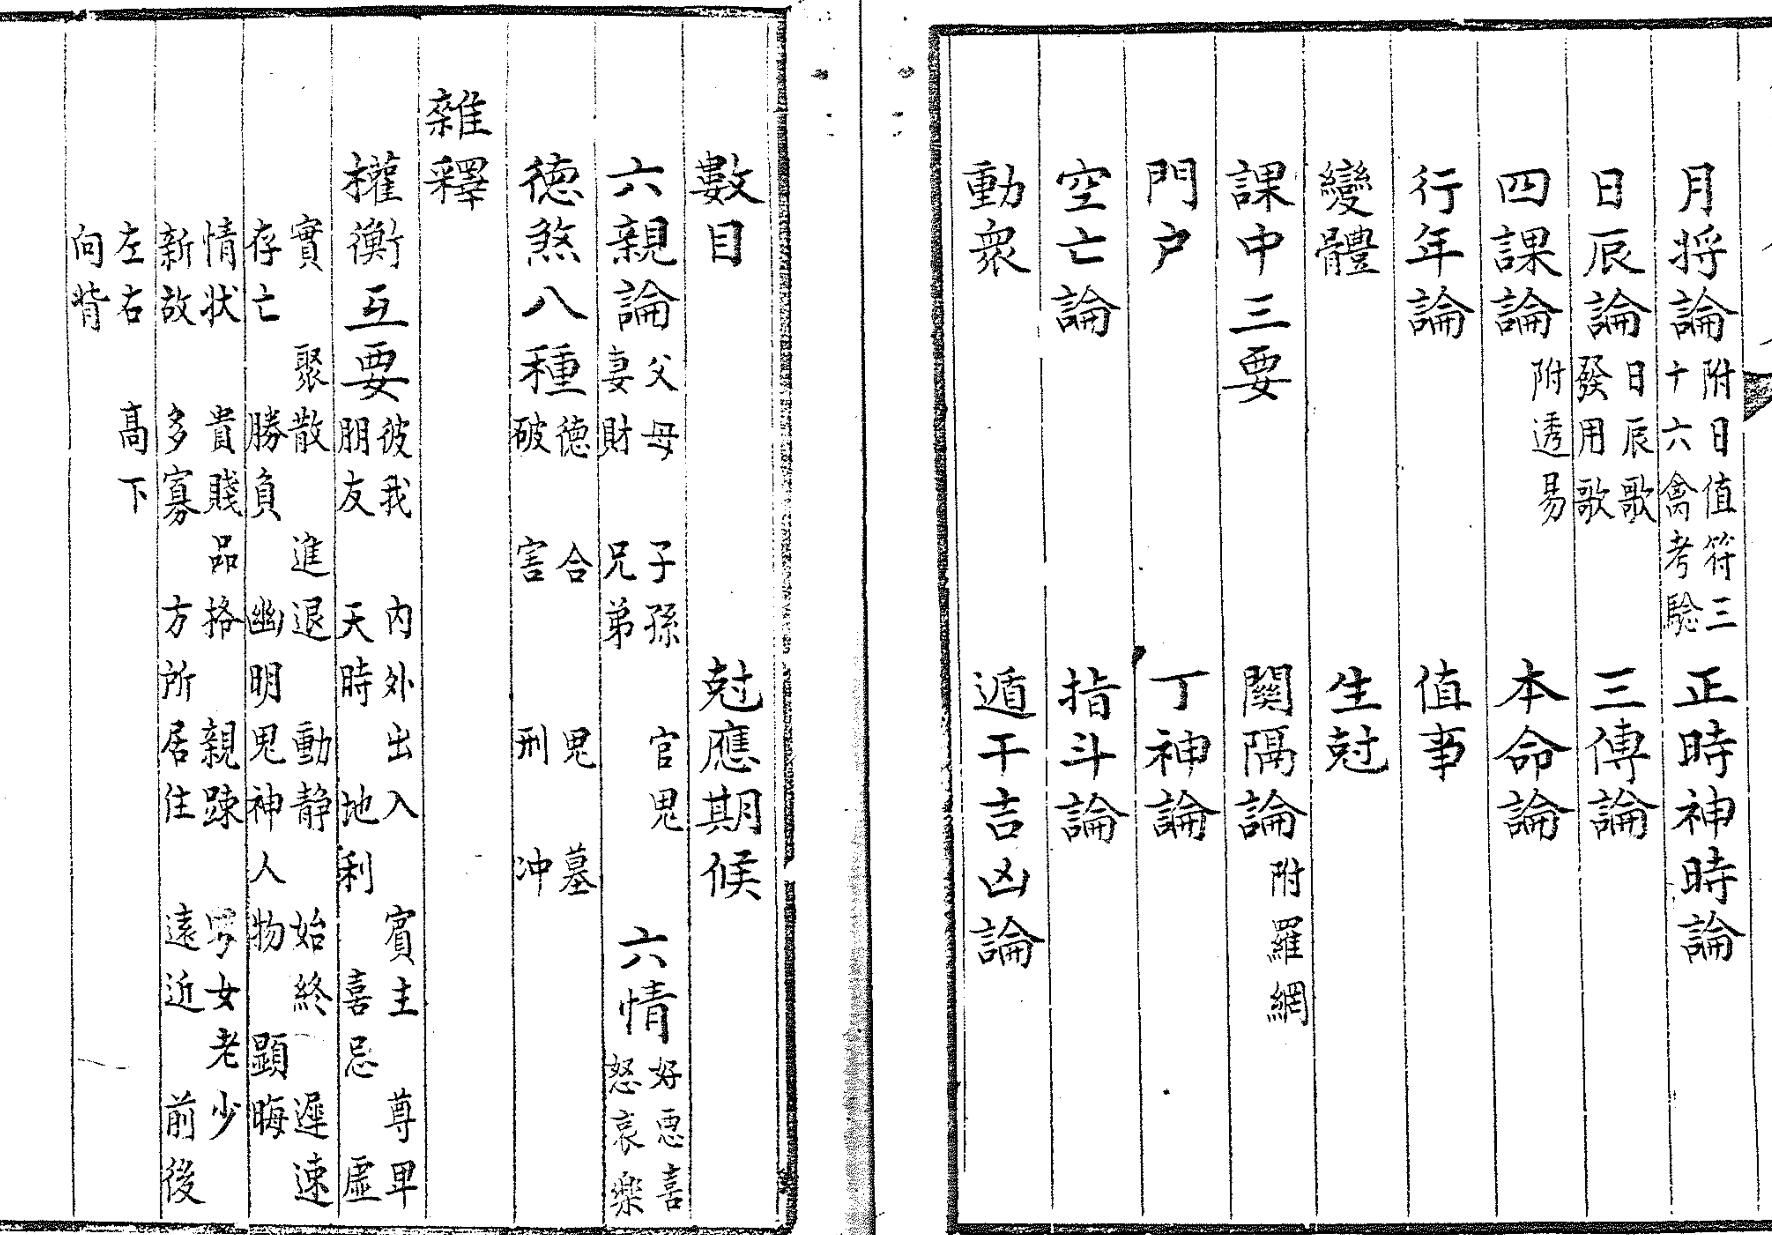 月将論 附日值符三十六禽考驗 正時神時論
日辰論 日辰歌 發用歌 三傳論
四課論 附透易 本命論
行年論 值事
變體 生尅
課中三要 關隔論 附羅網
門户 丁神論
空亡論 指斗論
動衆 遁干吉凶論
數目 尅應期候
六親論 父母 子孫 官鬼 妻財 兄弟 六情 好惡喜怒哀樂
德煞八種 德 合 鬼 墓 破 害 刑 冲
雜釋
權衡互要 彼我 内外出入 賓主 尊卑 朋友 天時 地利 喜忌 虛
實 聚散 進退 動静 始終 遲速 存亡 勝負 幽明鬼神人物 顯晦
情状 貴賤品格 親疎 男女老少 新故 多寡 方所居住 遠近 前後
左右 高下 向背